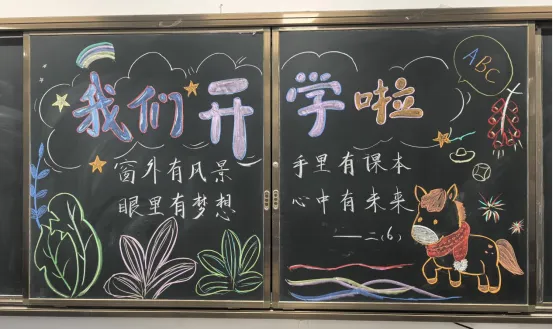 我们开学啦
ABC
窗外有风景
手里有课本
眼里有梦想
心中有未来
——二(6)